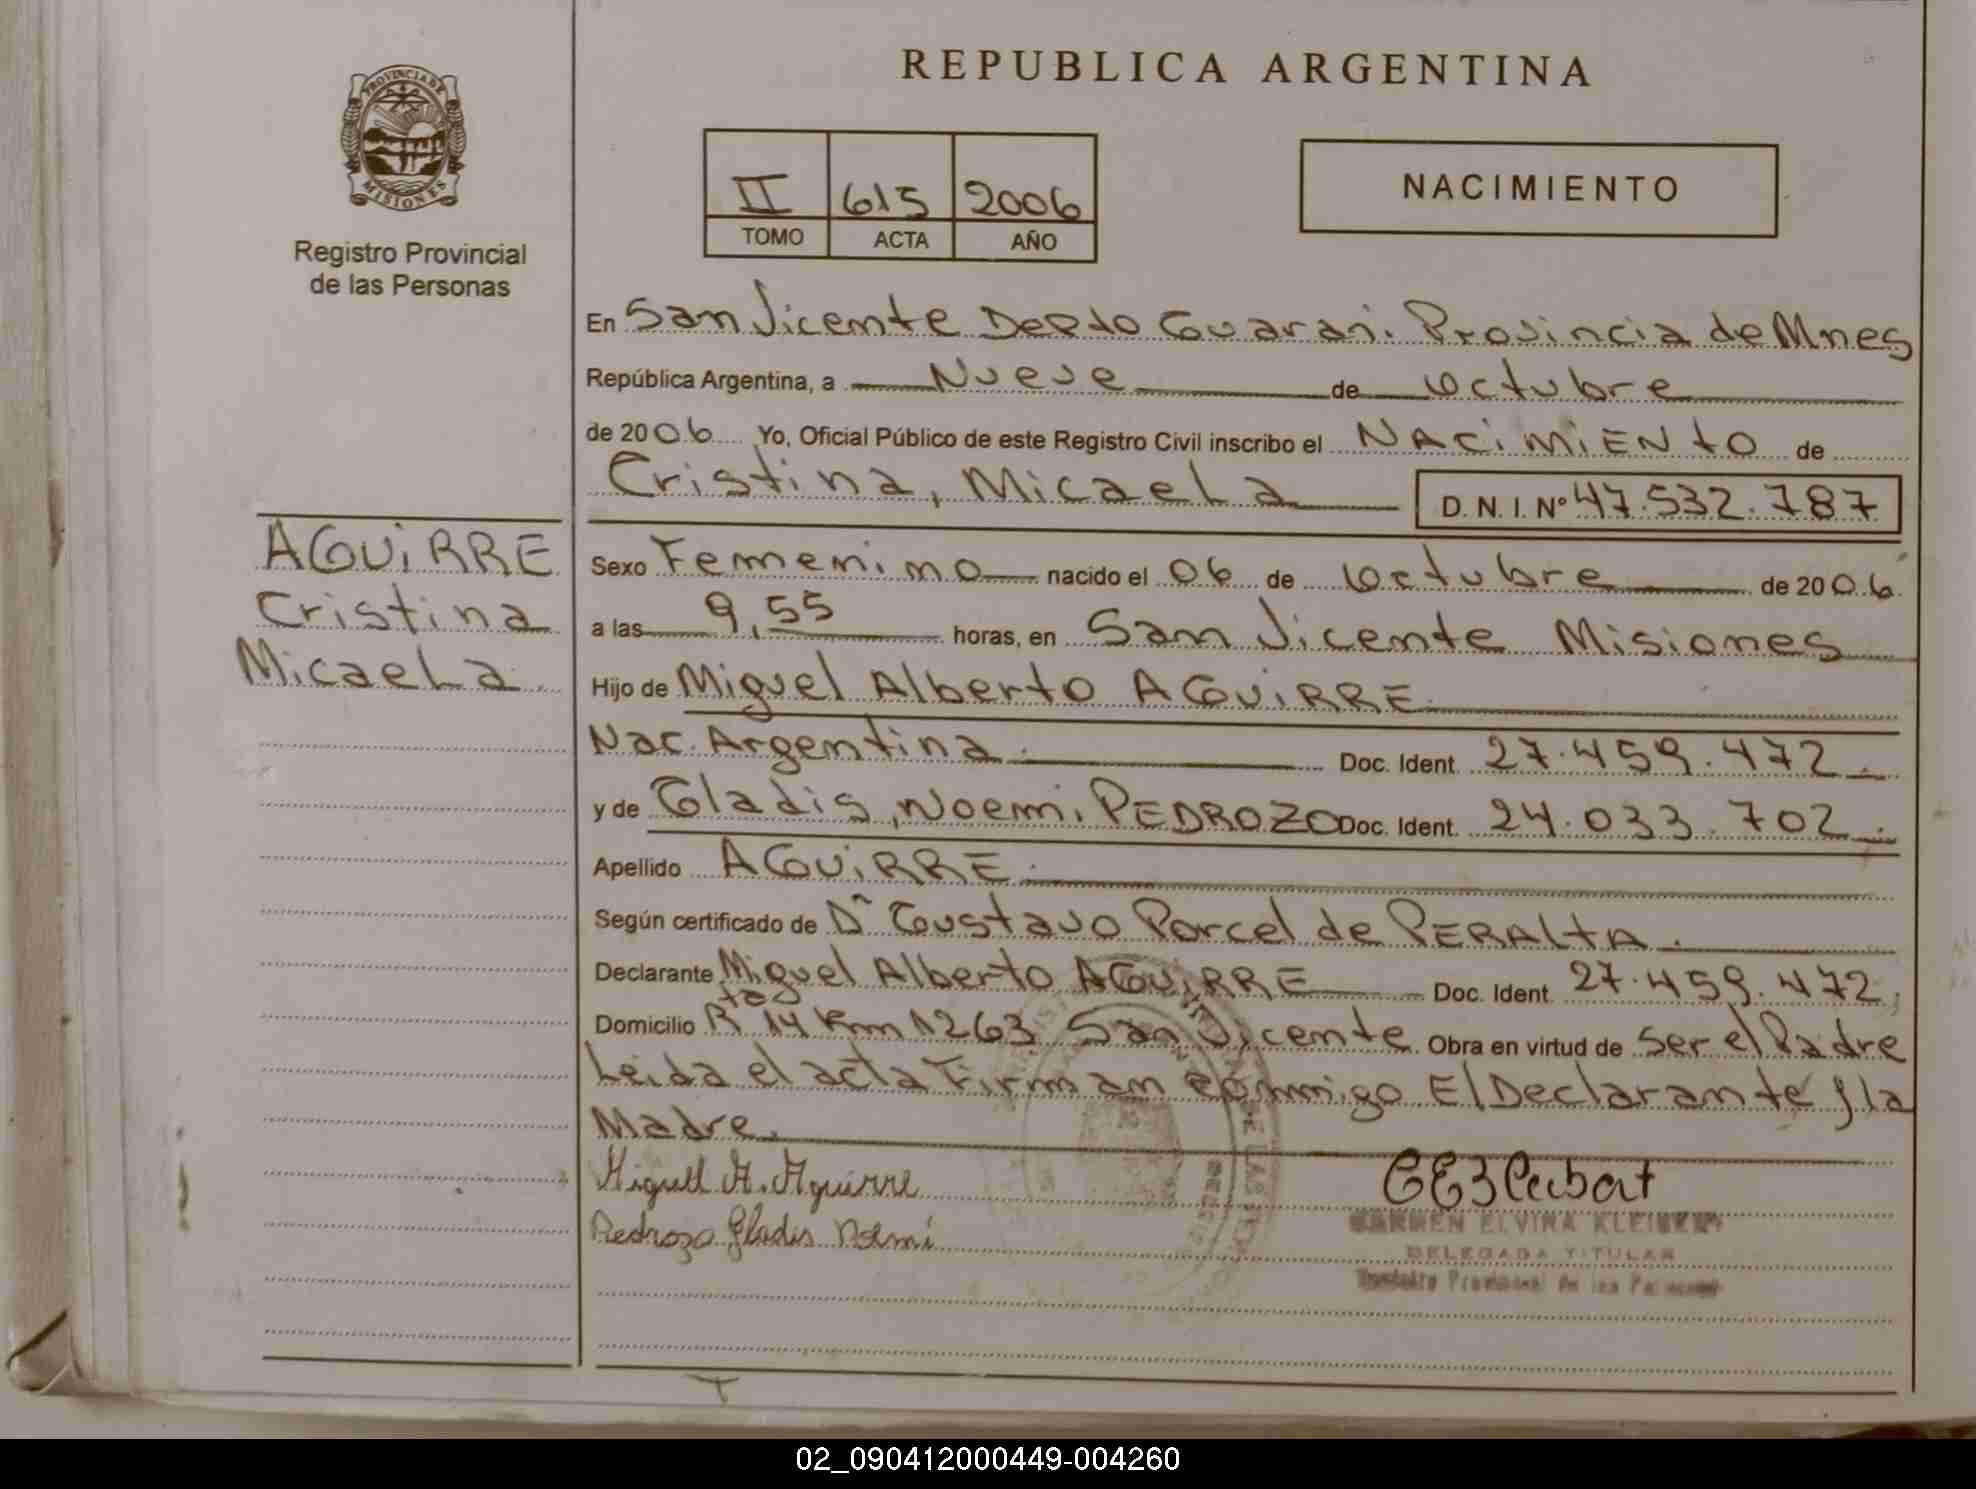 PROVINCIA DE
MISIONES
Registro Provincial
de las Personas
AGUiRRE
Cristina
Micaela
REPUBLICA ARGENTINA
II 615 2006
TOMO ACTA AÑO
NACIMIENTO
En San Vicente Depto Guarani. Provincia de Mnes
República Argentina, a Nueve de octubre
de 2006 Yo, Oficial Público de este Registro Civil inscribo el NACiMiENtO de
Cristina, Micaela D. N. I. Nº 47.532.787
Sexo Femenino nacido el 06 de octubre de 2006
a las 9,55 horas, en San Vicente Misiones
Hijo de Miguel Alberto AGUiRRE
Nac. Argentina. Doc. Ident. 27.459.472.
y de Gladis, Noemi PEDROZO Doc. Ident. 24.033.702.
Apellido AGUiRRE.
Según certificado de Dr Gustavo Porcel de PERALtA.
Declarante Miguel Alberto AGUiRRE Doc. Ident. 27.459.472,
Domicilio Rta 14 Km 1263 San Vicente Obra en virtud de Ser el Padre
Leida el acta Firman conmigo El Declarante y la
Madre.
Miguel A. Aguirre
Pedrozo Gladis Noemí
CARMEN ELVIRA
DELEGADA TITULAR
Registro Provincial de las Personas
02_090412000449-004260